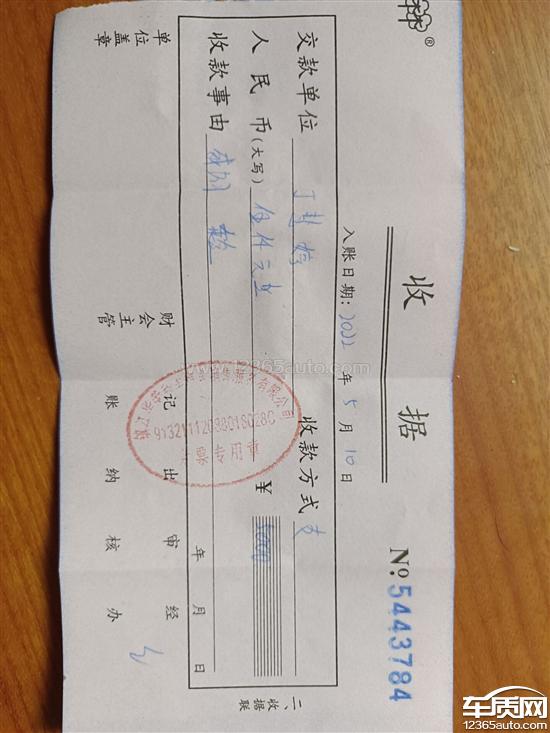 收据
№ 5443784
入账日期: 2022年5月10日
交款单位 丁 收款方式
人民币(大写) 伍仟元 ¥ 5000
收款事由
年 月 日
91321112088018028C
专用章
单位盖章 财会主管 记账 出纳 审核 经办
二、收据联
®
www.12365auto.com
车质网
12365auto.com